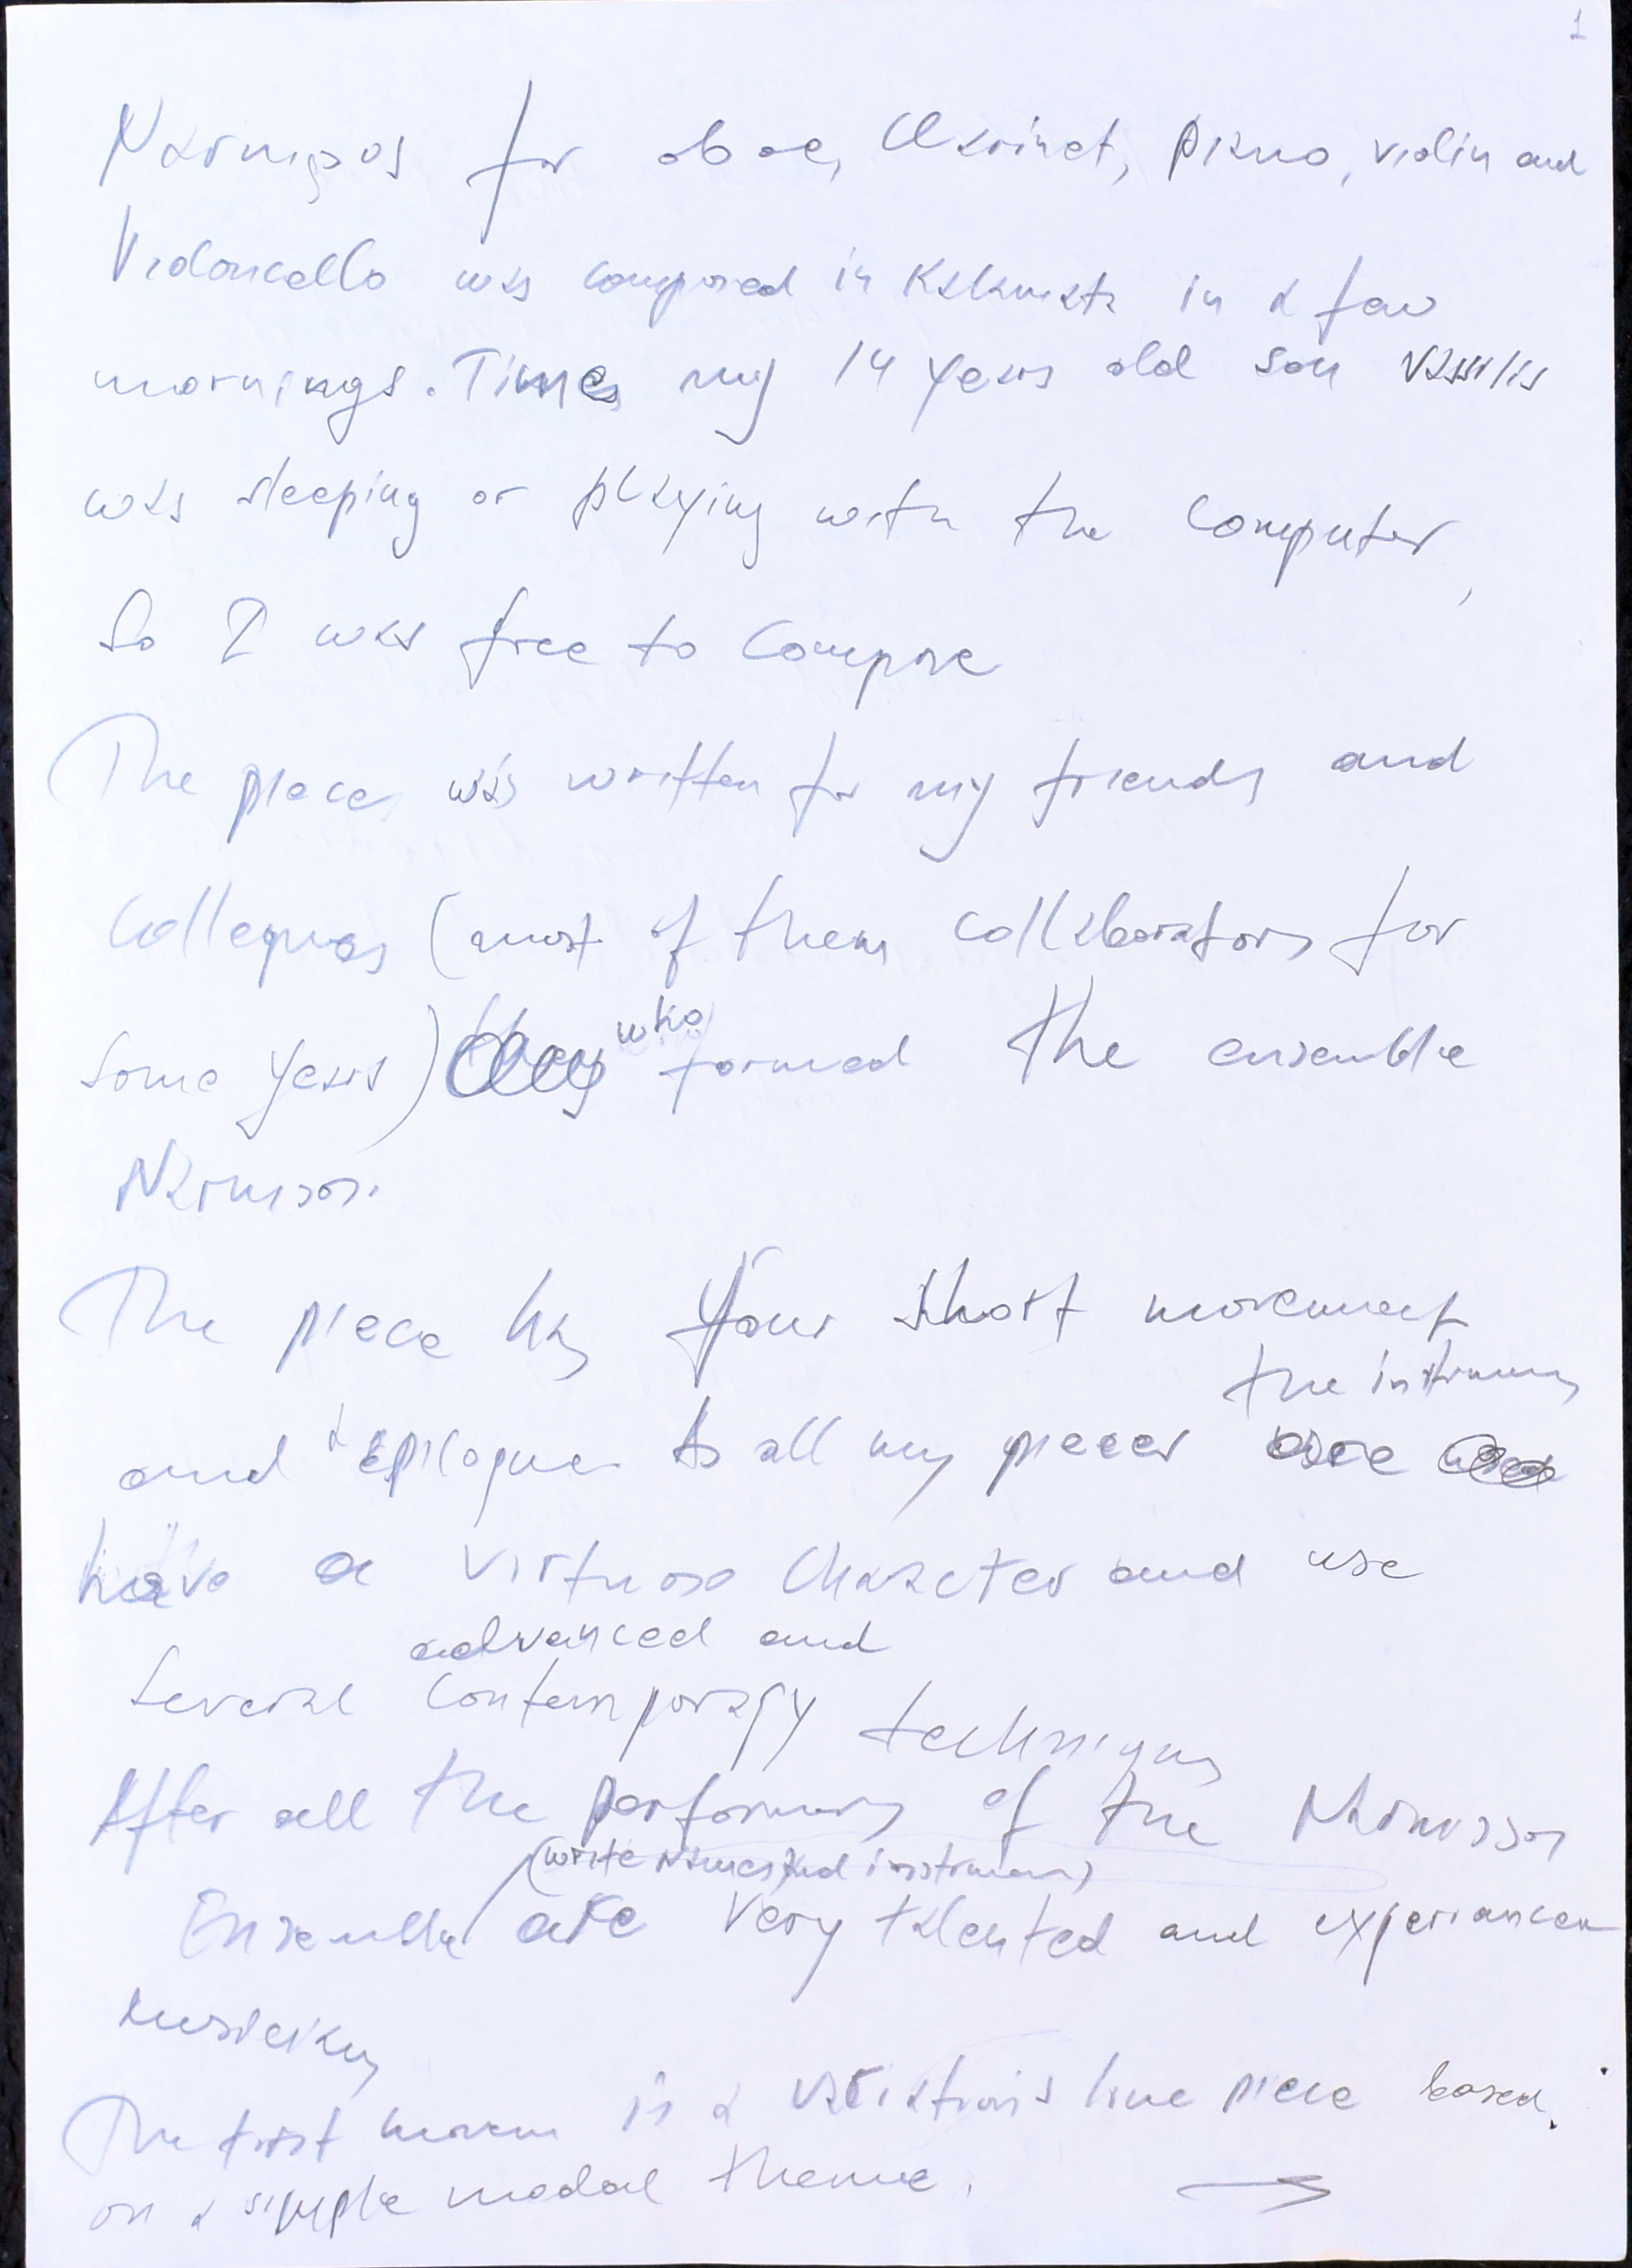 1
Narnisos for oboe, Clarinet, piano, violin and
Violoncello was composed in Kalamata in a few
mornings. Times my 14 years old son Vassilis
was sleeping or playing with the computer,
So I was free to Compose
The piece was written for my friends and
Collegues (most of them collaborators for
some years) they who formed the ensemble
Narnisos.
The piece has four short movement
the instrumens
and a epilogue As all my pieces are
have a virtuoso Character and use
advanced and
Several Contemporary techniques
After all the performers of the Narnissos
(write names and instrumens)
Ensemble are very talented and experiancea
musicians
The first movem is a variations line piece based
on a simple modal theme.